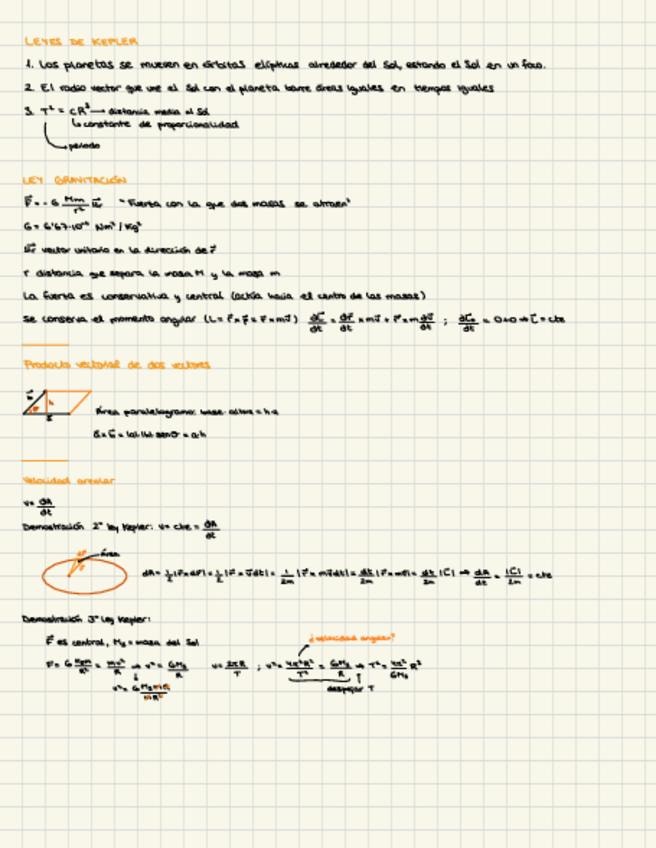 LEYES DE KEPLER
1. Los planetas se mueven en órbitas elípticas alrededor del Sol, estando el Sol en un foco.
2. El radio vector que une al Sol con el planeta barre áreas iguales en tiempos iguales
3. T² = CR³ → distancia media al Sol
↳ constante de proporcionalidad
periodo
LEY GRAVITACIÓN
F⃗ = - G Mm/r² u⃗r "Fuerza con la que dos masas se atraen"
G = 6'67·10⁻¹¹ Nm²/kg²
u⃗r vector unitario en la dirección de r⃗
r distancia que separa la masa M y la masa m
La fuerza es conservativa y central (actúa hacia el centro de las masas)
Se conserva el momento angular (L = r⃗ × p⃗ = r⃗ × mv⃗) dL⃗/dt = dr⃗/dt × mv⃗ + r⃗ × m dv⃗/dt ; dL⃗/dt = 0+0 ⇒ L⃗ = cte
Producto vectorial de dos vectores
Área paralelogramo: base · altura = h·a
a⃗ × b⃗ = |a|·|b|·senθ = a·h
Velocidad areolar
v = dA/dt
Demostración 2ª ley Kepler: v = cte = dA/dt
área
dA = 1/2 |r⃗ × dr⃗| = 1/2 |r⃗ × v⃗dt| = 1/2m |r⃗ × mv⃗dt| = dt/2m |r⃗ × mv⃗| = dt/2m |L⃗| ⇒ dA/dt = |L⃗|/2m = cte
Demostración 3ª ley Kepler:
F⃗ es central, Ms = masa del Sol
¿velocidad angular?
v = 2πR/T ; v² = 4π²R²/T² = GMs/R ⇒ T² = 4π²/GMs R³
despejar T